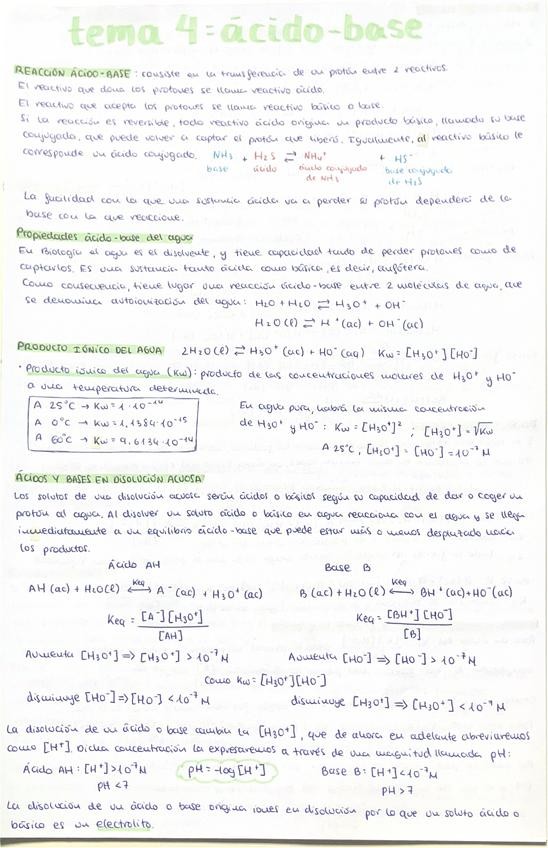 tema 4: ácido-base
REACCIÓN ÁCIDO-BASE: consiste en la transferencia de un protón entre 2 reactivos.
El reactivo que dona los protones se llama reactivo ácido.
El reactivo que acepta los protones se llama reactivo básico o base.
Si la reacción es reversible, todo reactivo ácido origina un producto básico, llamado su base
conjugada, que puede volver a captar el protón que liberó. Igualmente, al reactivo básico le
corresponde un ácido conjugado. NH3 + H2S ⇄ NH4+ + HS-
base ácido ácido conjugado de NH3 base conjugada de H2S
La facilidad con la que una sustancia ácida va a perder su protón dependerá de la
base con la que reaccione.
Propiedades ácido-base del agua
En Biología el agua es el disolvente, y tiene capacidad tanto de perder protones como de
captarlos. Es una sustancia tanto ácida como básica, es decir, anfótera.
Como consecuencia, tiene lugar una reacción ácido-base entre 2 moléculas de agua, que
se denomina autoionización del agua: H2O + H2O ⇄ H3O+ + OH-
H2O(l) ⇄ H+(ac) + OH-(ac)
PRODUCTO IÓNICO DEL AGUA 2H2O(l) ⇄ H3O+(ac) + HO-(aq) Kw = [H3O+][HO-]
· Producto iónico del agua (Kw): producto de las concentraciones molares de H3O+ y HO-
a una temperatura determinada.
A 25°C → Kw = 1·10^-14
A 0°C → Kw = 1,1384·10^-15
A 60°C → Kw = 9,6134·10^-14
En agua pura, habrá la misma concentración
de H3O+ y HO-: Kw = [H3O+]²; [H3O+] = √Kw
A 25°C, [H3O+] = [HO-] = 10^-7 M
ÁCIDOS Y BASES EN DISOLUCIÓN ACUOSA
Los solutos de una disolución acuosa serán ácidos o básicos según su capacidad de dar o coger un
protón al agua. Al disolver un soluto ácido o básico en agua reacciona con el agua y se llega
inmediatamente a un equilibrio ácido-base que puede estar más o menos desplazado hacia
los productos.
Ácido AH Base B
AH(ac) + H2O(l) ⟷Keq A-(ac) + H3O+(ac) B(ac) + H2O(l) ⟷Keq BH+(ac) + HO-(ac)
Keq = [A-][H3O+] / [AH] Keq = [BH+][HO-] / [B]
Aumenta [H3O+] ⇒ [H3O+] > 10^-7 M Aumenta [HO-] ⇒ [HO-] > 10^-7 M
Como Kw = [H3O+][HO-]
disminuye [HO-] ⇒ [HO-] < 10^-7 M disminuye [H3O+] ⇒ [H3O+] < 10^-7 M
La disolución de un ácido o base cambia la [H3O+], que de ahora en adelante abreviaremos
como [H+]. Dicha concentración la expresaremos a través de una magnitud llamada pH:
Ácido AH: [H+] > 10^-7 M pH = -log[H+] Base B: [H+] < 10^-7 M
pH < 7 pH > 7
La disolución de un ácido o base origina iones en disolución por lo que un soluto ácido o
básico es un electrolito.